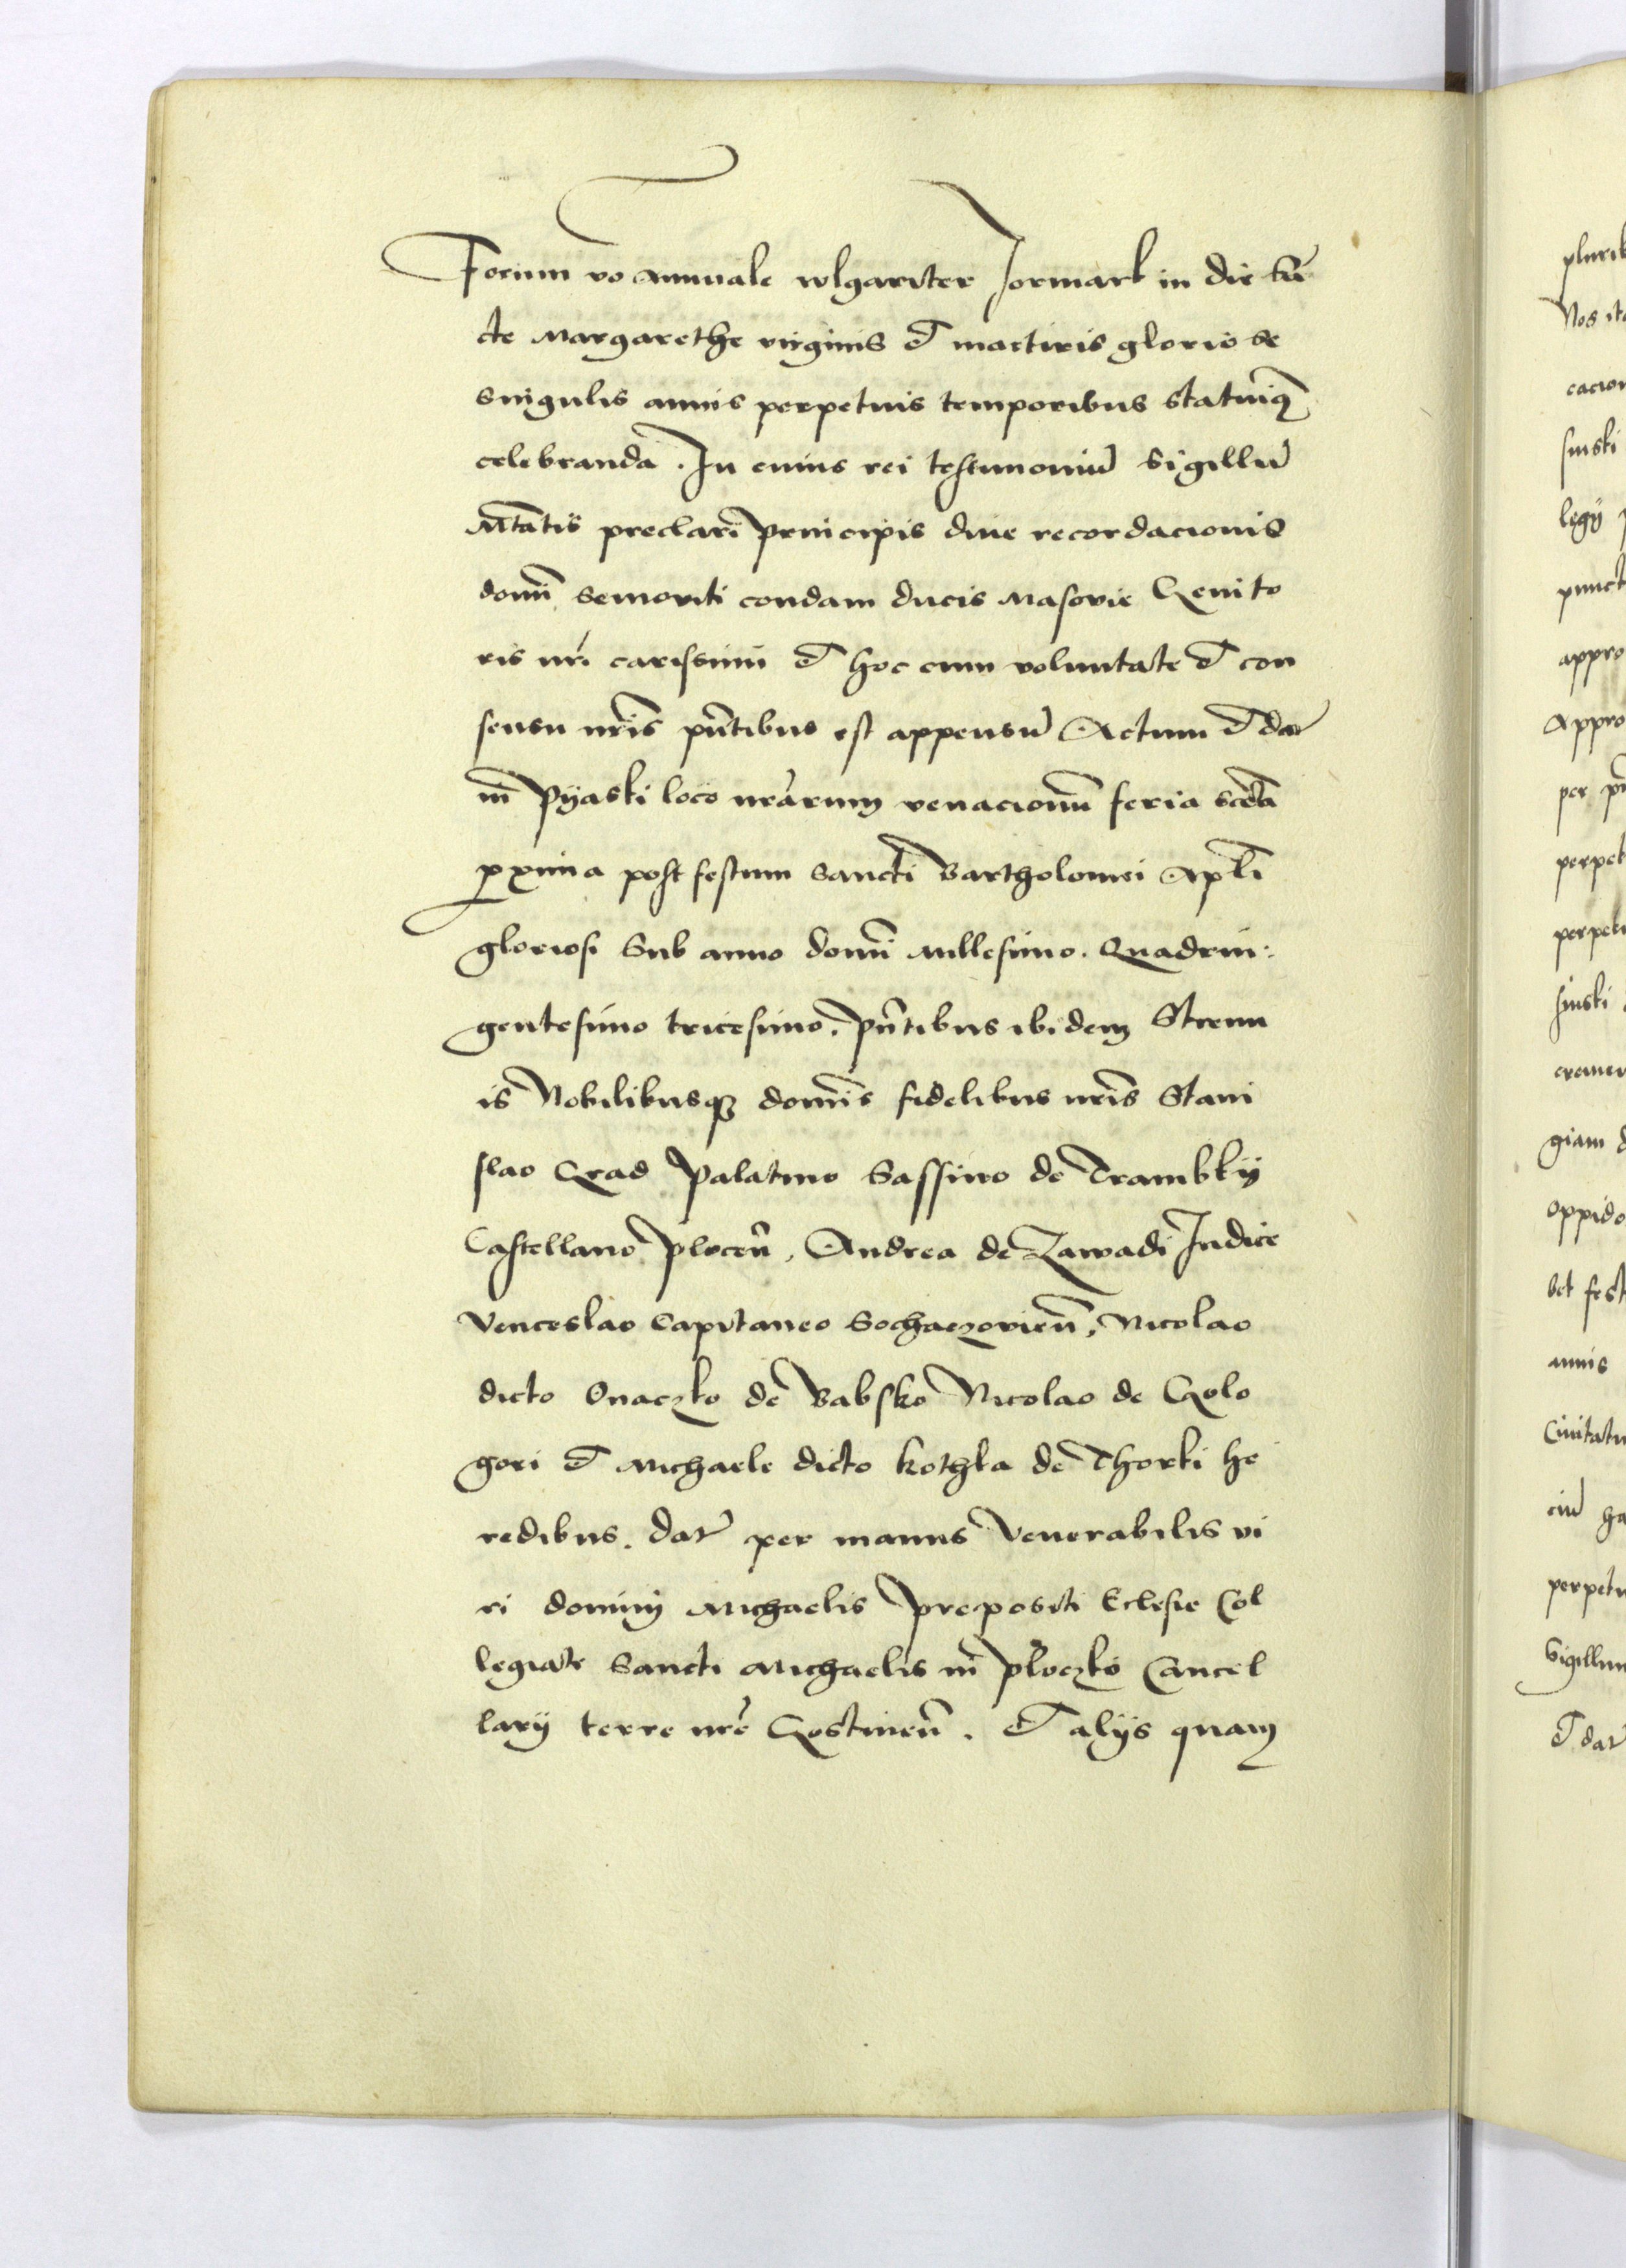 Forum vo annuale wlgariter Jormark in die san
cte Margarethe virginis et martiris gloriose
singulis annis perpetuis temporibus statuimꝰ
celebranda. In cuius rei testimoniū Sigillū
Mtatis preclari principis diue recordacionis
domī Semoviti condam ducis Masovie Genito
ris nrī carissimi et hoc cum voluntate et con
sensu nrīs pn̄tibus est appensū Actum et dat̄
in Pyaski loco nrārum venacionū feria scda
proxima post festum Sancti Bartholomei Apl̄i
gloriosi Sub anno domī Millesimo. Quadrin:
gentesimo tricesimo. pn̄tibus ibidem Strenu
is Nobilibusqȝ domīs fidelibus nrīs Stani
slao Grad Palatino Sassino de Trambky
Castellano plocen̄, Andrea de Zawadi Iudice
Venceslao Capitaneo Sochaczovien̄, Nicolao
dicto Onaczko de Babsko Nicolao de Golo
gori et Michaele dicto Kothka de Thorki he
redibus. dat̄ per manus Venerabilis vi
ri dominj Michaelis prepositi Eclesie Col
legiate Sancti Michaelis in ploczko Cancel
larij terre nrē Gostinen̄. et alijs quam
plurib
Nos ita
cacion
sinski
legy
punct
appro
Appro
per pn̄
perpet
perpetu
sinski
craner
giam d
oppido
bet fest
annis
Civitatu
ciū ha
perpetu
Sigillum
et dat̄